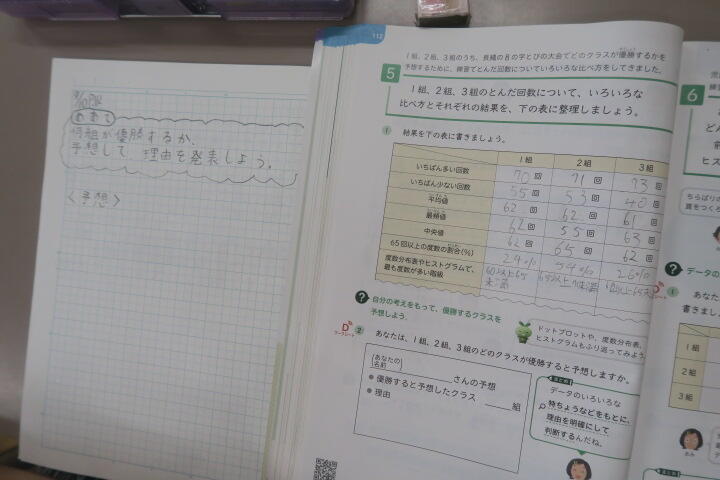 めあて
何組が優勝するか、
予想して、理由を発表しよう。
〈予想〉
112
1組、2組、3組のうち、長縄の8の字とびの大会でどのクラスが優勝するかを
予想するために、練習でとんだ回数についていろいろな比べ方をしてきました。
5
1組、2組、3組のとんだ回数について、いろいろな
比べ方とそれぞれの結果を、下の表に整理しましょう。
1 結果を下の表に書きましょう。
1組 2組 3組
いちばん多い回数 70回 71回 73回
いちばん少ない回数 55回 53回 40回
平均値 62回 62回 61回
最頻値 62回 55回 63回
中央値 62回 65回 62回
65回以上の度数の割合(%) 24% 54% 26%
度数分布表やヒストグラムで、
最も度数が多い階級
60以上65
未満
? 自分の考えをもって、優勝するクラスを
予想しよう。
ドットプロットや、度数分布表、
ヒストグラムもふり返ってみよう。
D
ワークシート
2 あなたは、1組、2組、3組のどのクラスが優勝すると予想しますか。
(あなたの
名前) さんの予想
● 優勝すると予想したクラス 組
● 理由
まとめ
データのいろいろな
特ちょうなどをもとに、
理由を明確にして
判断するんだね。
6
ちらばりの
? データの
1 あなた
書きまし
1組
2組
3組
まとめ